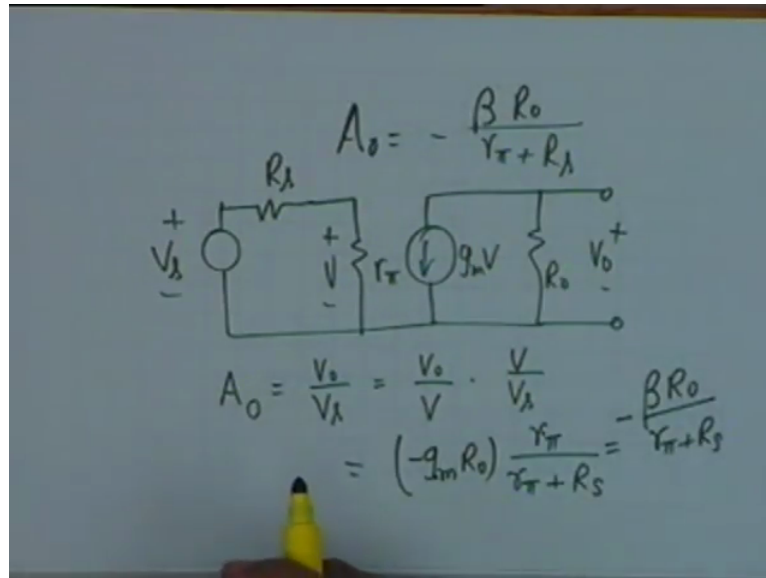 A₀ = - β R₀ / (rπ + Rs)
Rs
+ Vs -
+ V -
rπ
gmV
R₀
V₀ + -
A₀ = V₀/Vs = V₀/V · V/Vs
= (-gmR₀) rπ / (rπ + Rs) = - βR₀ / (rπ + Rs)